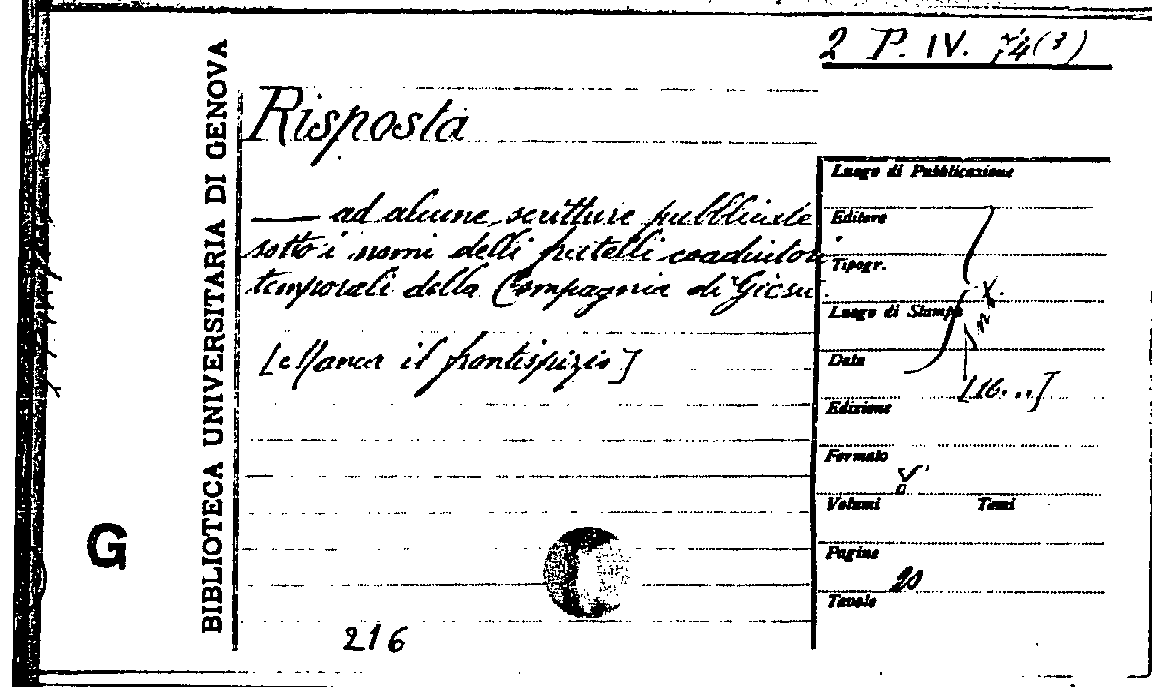 2 P. IV. 74(3)
BIBLIOTECA UNIVERSITARIA DI GENOVA
Risposta
— ad alcune scritture pubblicate
sotto i nomi delli fratelli coadiutori
temporali della Compagnia di Giesu.
[Manca il frontispizio]
Luogo di Pubblicazione
Editore
Tipogr.
Luogo di Stampa
Data
[16...]
Edizione
Formato
Volumi Tomi
Pagine
20
Tavole
G
216